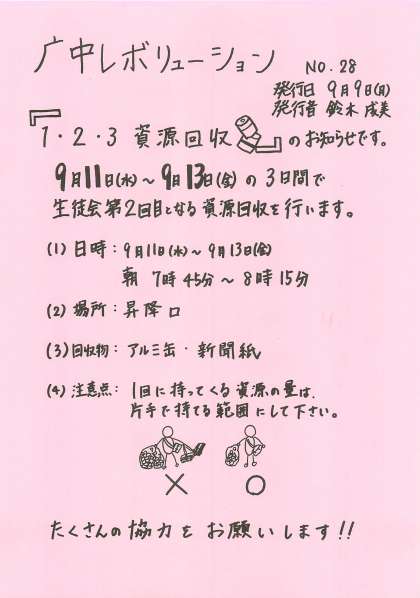 广中レボリューション NO.28
発行日 9月9日(月)
発行者 鈴木 成美
『1・2・3 資源回収』のお知らせです。
9月11日(水)～9月13日(金)の3日間で
生徒会第2回目となる資源回収を行います。
(1) 日時：9月11日(水)～9月13日(金)
朝 7時45分～8時15分
(2) 場所：昇降口
(3) 回収物：アルミ缶・新聞紙
(4) 注意点：1回に持ってくる資源の量は、
片手で持てる範囲にして下さい。
× ○
たくさんの協力をお願いします!!